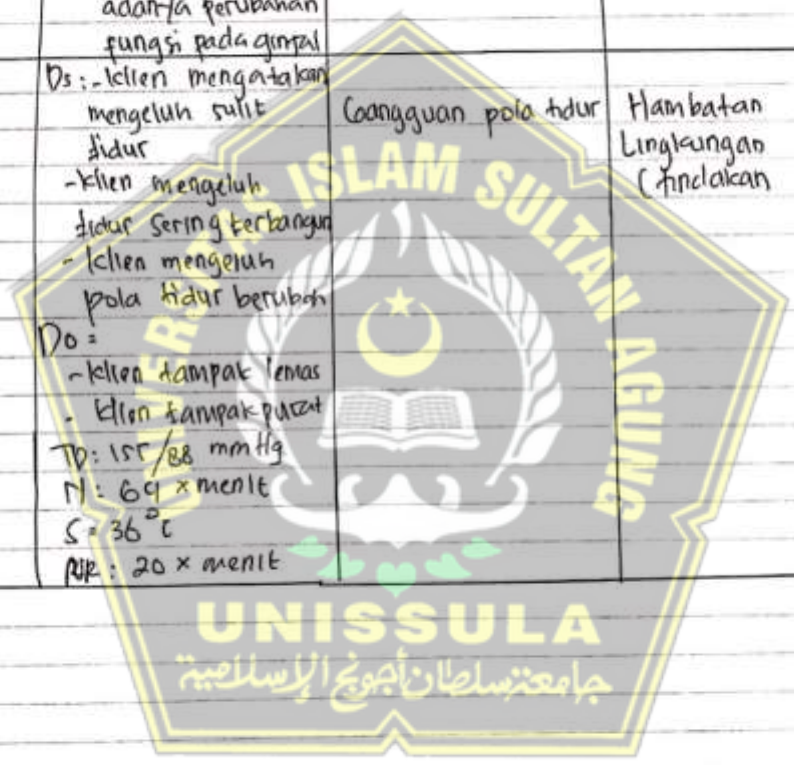 adanya perubahan
fungsi pada ginjal
Ds : - klien mengatakan
mengeluh sulit
tidur
- klien mengeluh
tidur sering terbangun
- klien mengeluh
pola tidur berubah
Do =
- klien tampak lemas
- klien tampak pucat
TD : 155/88 mmHg
N : 69 x menit
S = 36°C
RR : 20 x menit
Gangguan pola tidur
Hambatan
Lingkungan
(tindakan
UNIVERSITAS ISLAM SULTAN AGUNG
UNISSULA
جامعة سلطان أجونج الإسلامية